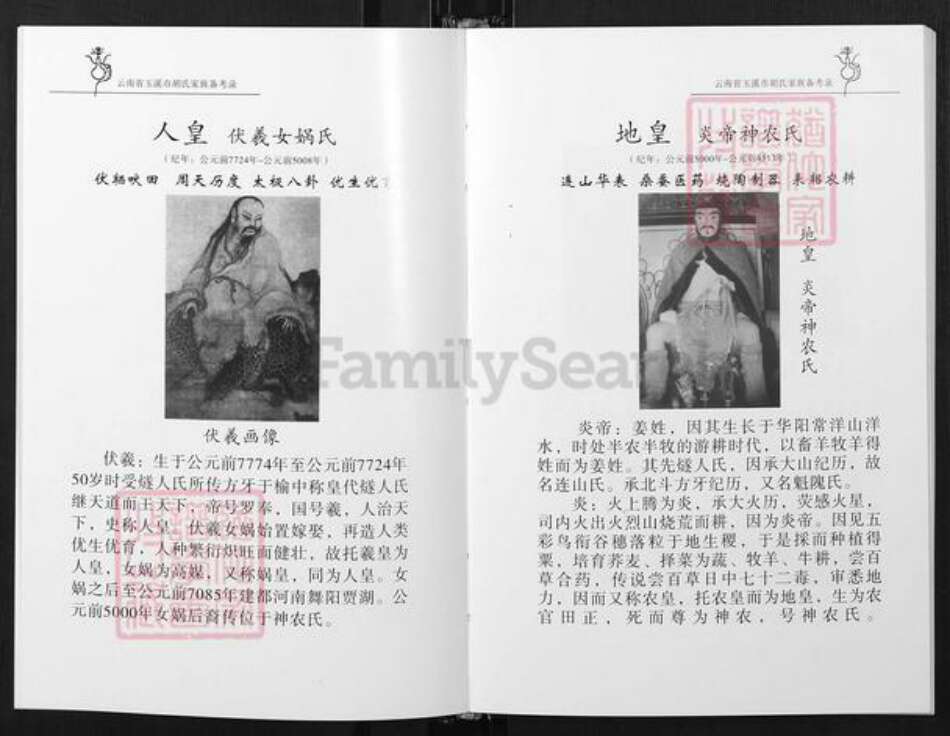 云南省玉溪市胡氏家族备考录
人皇 伏羲女娲氏
（纪年：公元前7724年-公元前5008年）
周天历度 太极八卦 优生优育
伏羲画像
伏羲：生于公元前7774年至公元前7724年
50岁时受燧人氏所传方牙于榆中称皇代燧人氏
继天道而王天下，帝号罗奉，国号羲，人治天
下，史称人皇。伏羲女娲始置嫁娶，再造人类
优生优育，人种繁衍炽旺而健壮，故托羲皇为
人皇，女娲为高媒，又称娲皇，同为人皇。女
娲之后至公元前7085年建都河南舞阳贾湖。公
元前5000年女娲后裔传位于神农氏。
云南省玉溪市胡氏家族备考录
地皇 炎帝神农氏
（纪年：公元前5000年-公元前
连山华表 桑蚕医药 烧陶制器 耒耜农耕
地皇 炎帝神农氏
FamilySear
炎帝：姜姓，因其生长于华阳常洋山洋
水，时处半农半牧的游耕时代，以畜羊牧羊得
姓而为姜姓。其先燧人氏，因承大山纪历，故
名连山氏。承北斗方牙纪历，又名魁隗氏。
炎：火上腾为炎，承大火历，荧感火星，
司内火出火烈山烧荒而耕，因为炎帝。因见五
彩鸟衔谷穗落粒于地生稷，于是採而种植得
粟，培育荞麦、择菜为蔬、牧羊、牛耕，尝百
草合药，传说尝百草日中七十二毒，审悉地
力，因而又称农皇，托农皇而为地皇，生为农
官田正，死而尊为神农，号神农氏。